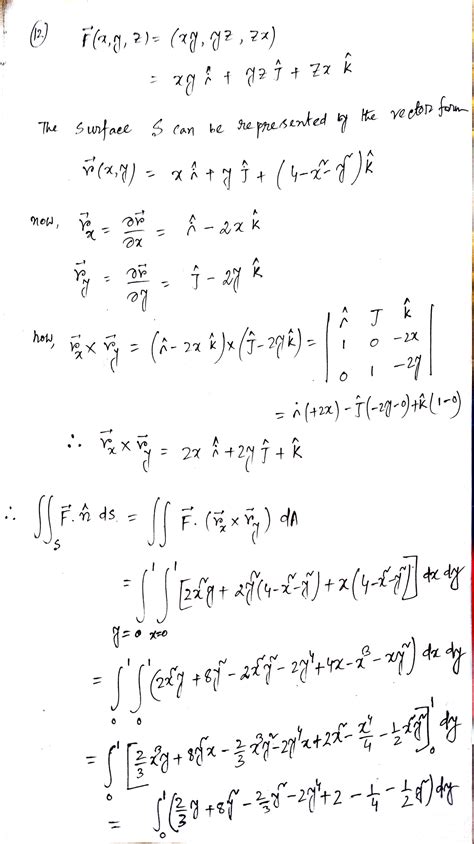 12. F⃗(x,y,z) = (xy, yz, zx)
= xy î + yz ĵ + zx k̂
The surface S can be represented by the vector form
r⃗(x,y) = x î + y ĵ + (4-x²-y²) k̂
now, r⃗x = ∂r⃗/∂x = î - 2x k̂
r⃗y = ∂r⃗/∂y = ĵ - 2y k̂
now, r⃗x × r⃗y = (î - 2x k̂) × (ĵ - 2y k̂) = | î ĵ k̂ |
| 1 0 -2x |
| 0 1 -2y |
= î(+2x) - ĵ(-2y-0) + k̂(1-0)
∴ r⃗x × r⃗y = 2x î + 2y ĵ + k̂
∴ ∬S F⃗. n̂ ds = ∬ F⃗. (r⃗x × r⃗y) dA
= ∫y=0^1 ∫x=0^1 [2x²y + 2y²(4-x²-y²) + x(4-x²-y²)] dx dy
= ∫0^1 ∫0^1 (2x²y + 8y² - 2x²y² - 2y⁴ + 4x - x³ - xy²) dx dy
= ∫0^1 [2/3 x³y + 8y²x - 2/3 x³y² - 2y⁴x + 2x² - x⁴/4 - 1/2 x²y²]0^1 dy
= ∫0^1 (2/3 y + 8y² - 2/3 y² - 2y⁴ + 2 - 1/4 - 1/2 y²) dy